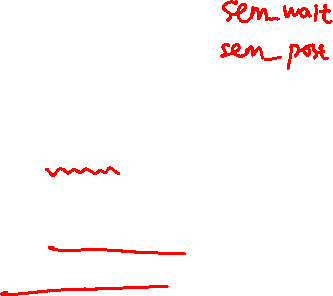 sem_wait
sem_post